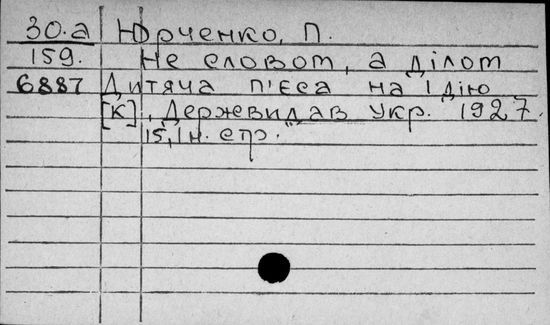 30.а Юрченко, П.
159. Не словом, а ділом
6887 Дитяча п'єса на 1 дію
[К], Держвидав Укр. 1927.
15, 1 н. стр.